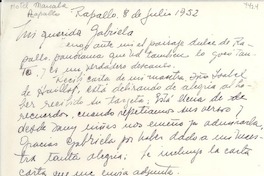 Hotel Marsala
Rapallo
Rapallo, 8 de Julio 1952
Mi querida Gabriela
eres ante un el paisaje dulce de Ra-
pallo, panorama que Ud. también lo goza tan-
to, es un verdadero descanso.
Recibí carta de mi maestra Srta Isabel
de Huillaf, está delirando de alegría al ha-
ber recibido su tarjeta. Está llena de
recuerdos, cuando repetíamos sus versos y
desde muy niños nos enseñó ya admirarla.
Gracias Gabriela por haber dado a mi maes-
tra tanta alegría. Le incluyo la carta
carta que me envía adjunto.